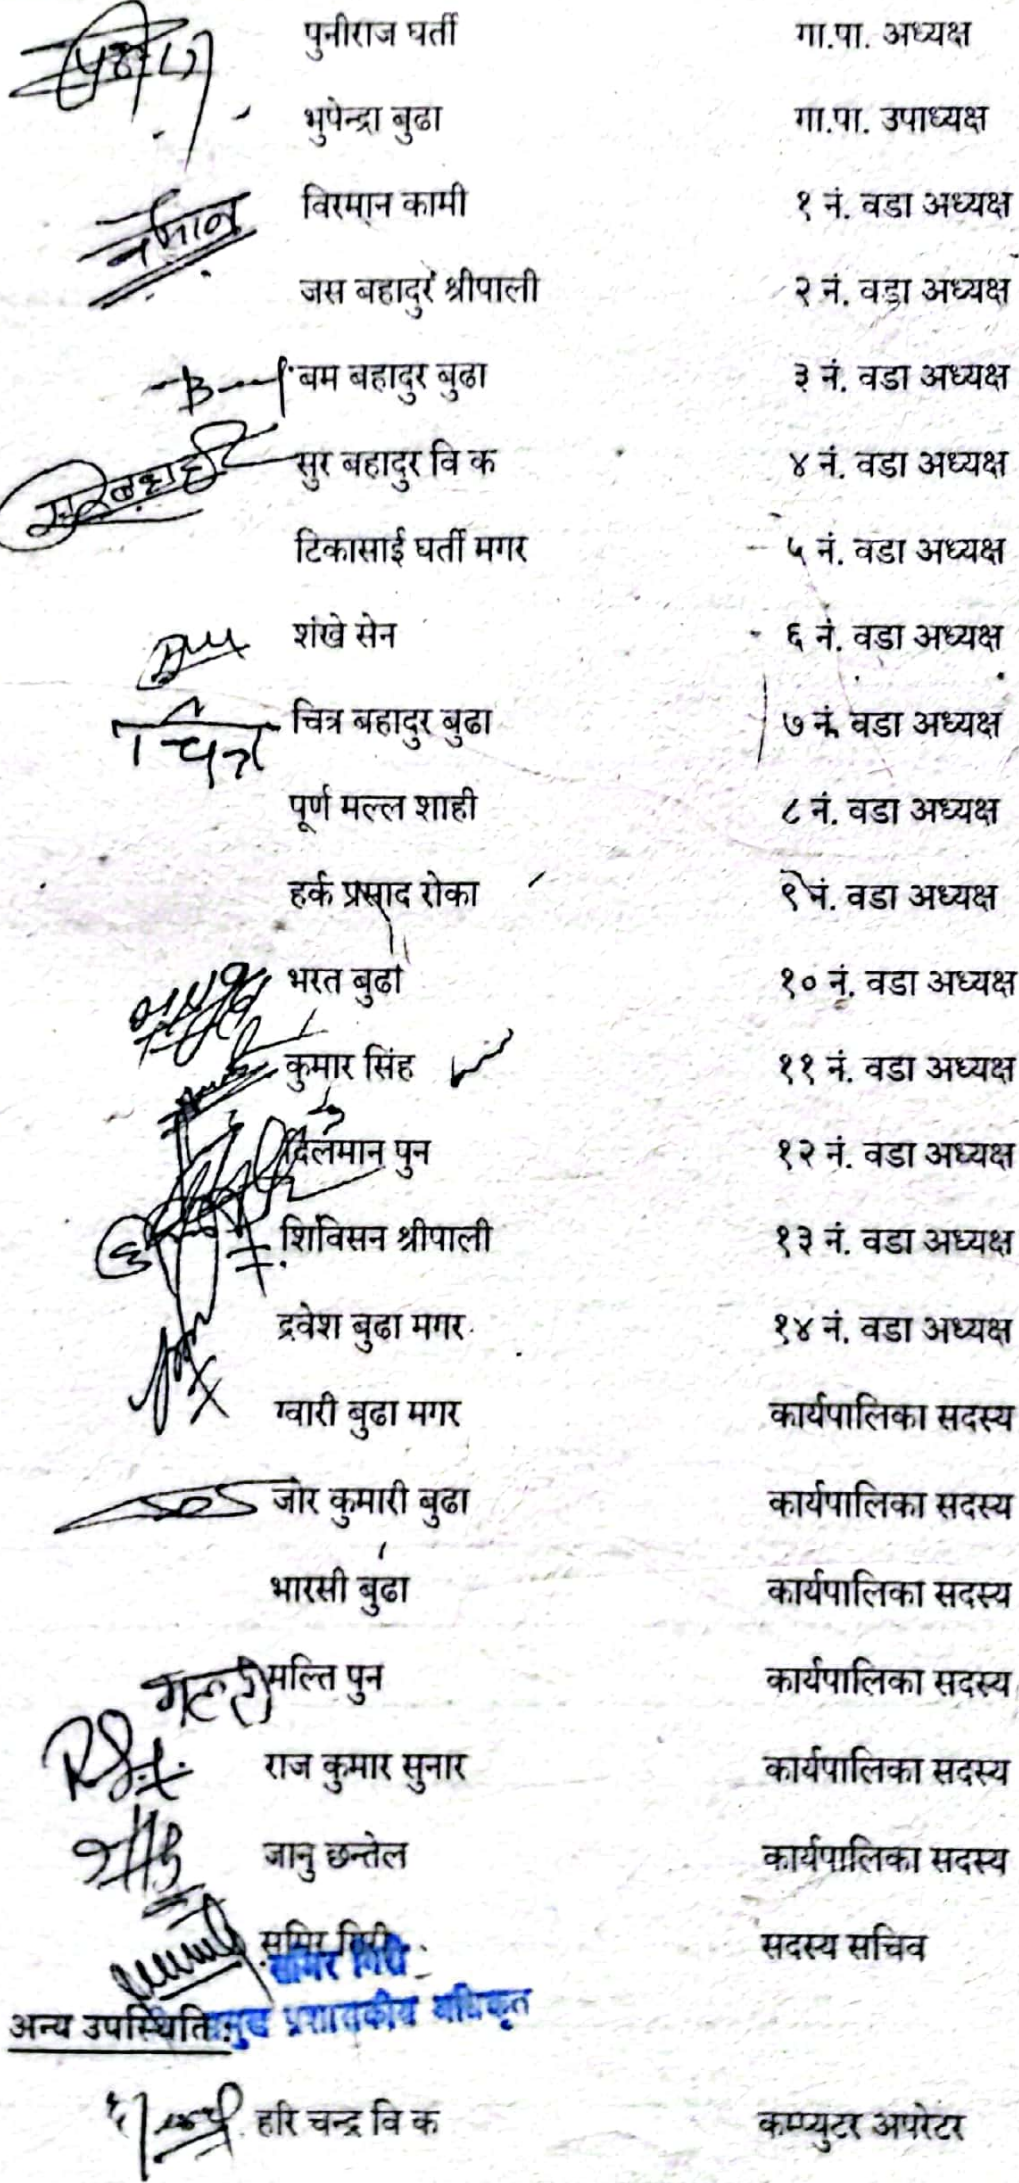 पुनीराज घर्ती गा.पा. अध्यक्ष
भुपेन्द्रा बुढा गा.पा. उपाध्यक्ष
विरमान कामी १ नं. वडा अध्यक्ष
जस बहादुर श्रीपाली २ नं. वडा अध्यक्ष
बम बहादुर बुढा ३ नं. वडा अध्यक्ष
सुर बहादुर वि क ४ नं. वडा अध्यक्ष
टिकासाई घर्ती मगर ५ नं. वडा अध्यक्ष
शंखे सेन ६ नं. वडा अध्यक्ष
चित्र चित्र बहादुर बुढा ७ नं. वडा अध्यक्ष
पूर्ण मल्ल शाही ८ नं. वडा अध्यक्ष
हर्क प्रसाद रोका ९ नं. वडा अध्यक्ष
भरत बुढा १० नं. वडा अध्यक्ष
कुमार सिंह ११ नं. वडा अध्यक्ष
दिलमान पुन १२ नं. वडा अध्यक्ष
शिविसन श्रीपाली १३ नं. वडा अध्यक्ष
द्रवेश बुढा मगर १४ नं. वडा अध्यक्ष
ग्वारी बुढा मगर कार्यपालिका सदस्य
जोर कुमारी बुढा कार्यपालिका सदस्य
भारसी बुढा कार्यपालिका सदस्य
मल्ति पुन कार्यपालिका सदस्य
राज कुमार सुनार कार्यपालिका सदस्य
जानु छन्तेल कार्यपालिका सदस्य
समिर गिरी सदस्य सचिव
समिर गिरी
अन्य उपस्थिति: प्रमुख प्रशासकीय अधिकृत
हरि चन्द्र वि क कम्प्युटर अपरेटर